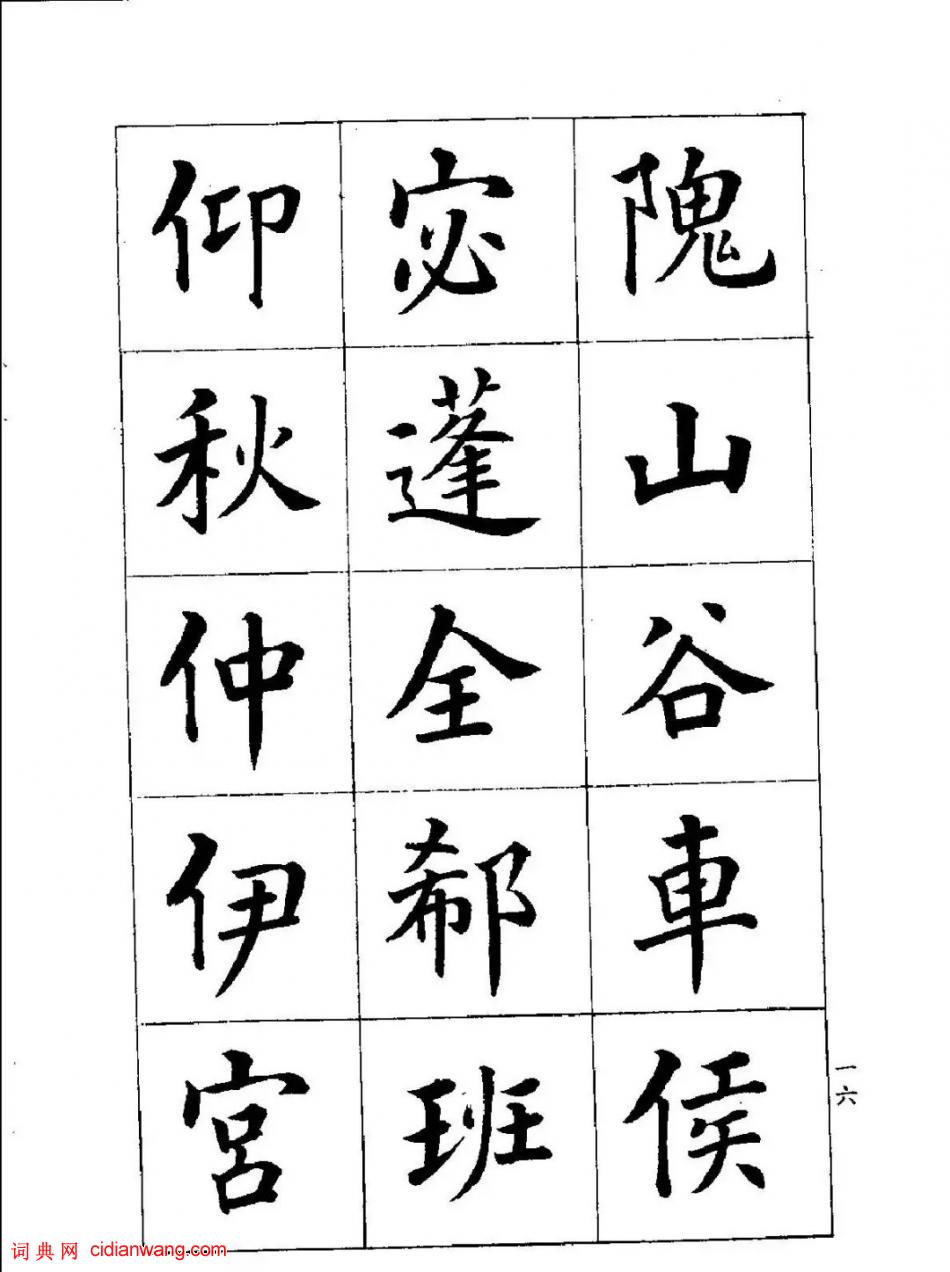 隗山谷車侯
宓蓬全郗班
仰秋仲伊宮
一六
词典网 cidianwang.com